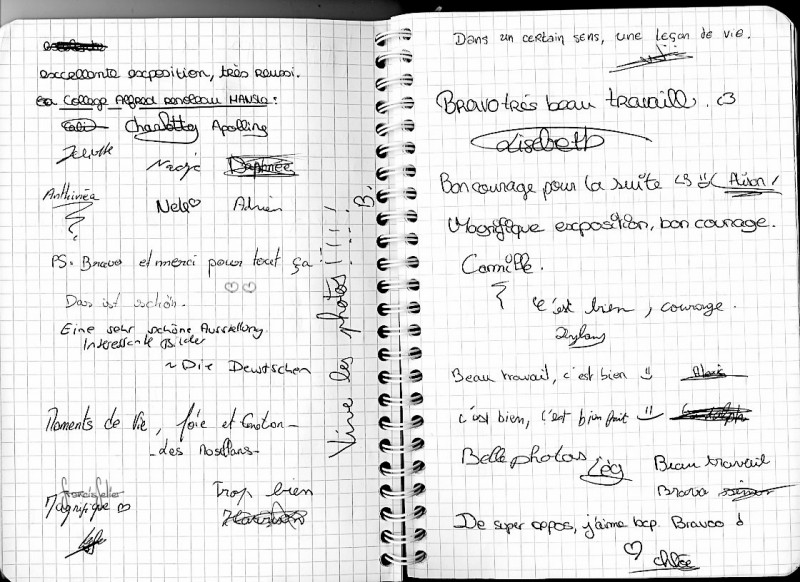 excellente exposition, très réussi.
Collège Alfred
Charlotte Apolline
Juliette Nadja Daphnée
Anthinéa Nela♡ Adrien
PS. Bravo et merci pour tout ça!
♡♡
Das ist schön.
Eine sehr schöne Ausstellung
Interessante Bilder
~ Die Deutschen
Vive les photos!!!!! B.
Moments de Vie, Joie et Emotion -
- des Mosellans -
Magnifique ♡
Trop bien
Dans un certain sens, une leçon de vie.
Bravo très beau travaille. <3
Lisebeth
Bon courage pour la suite <3 :( Alison!
Magnifique exposition, bon courage.
Camille.
C'est bien, courage.
Dylan
Beau travail, c'est bien :) Alexis
c'est bien, c'est bien fait :)
Belle photos Léa
Beau travail
Bravo
De super expos, j'aime bcp. Bravoo
♡ Chloe